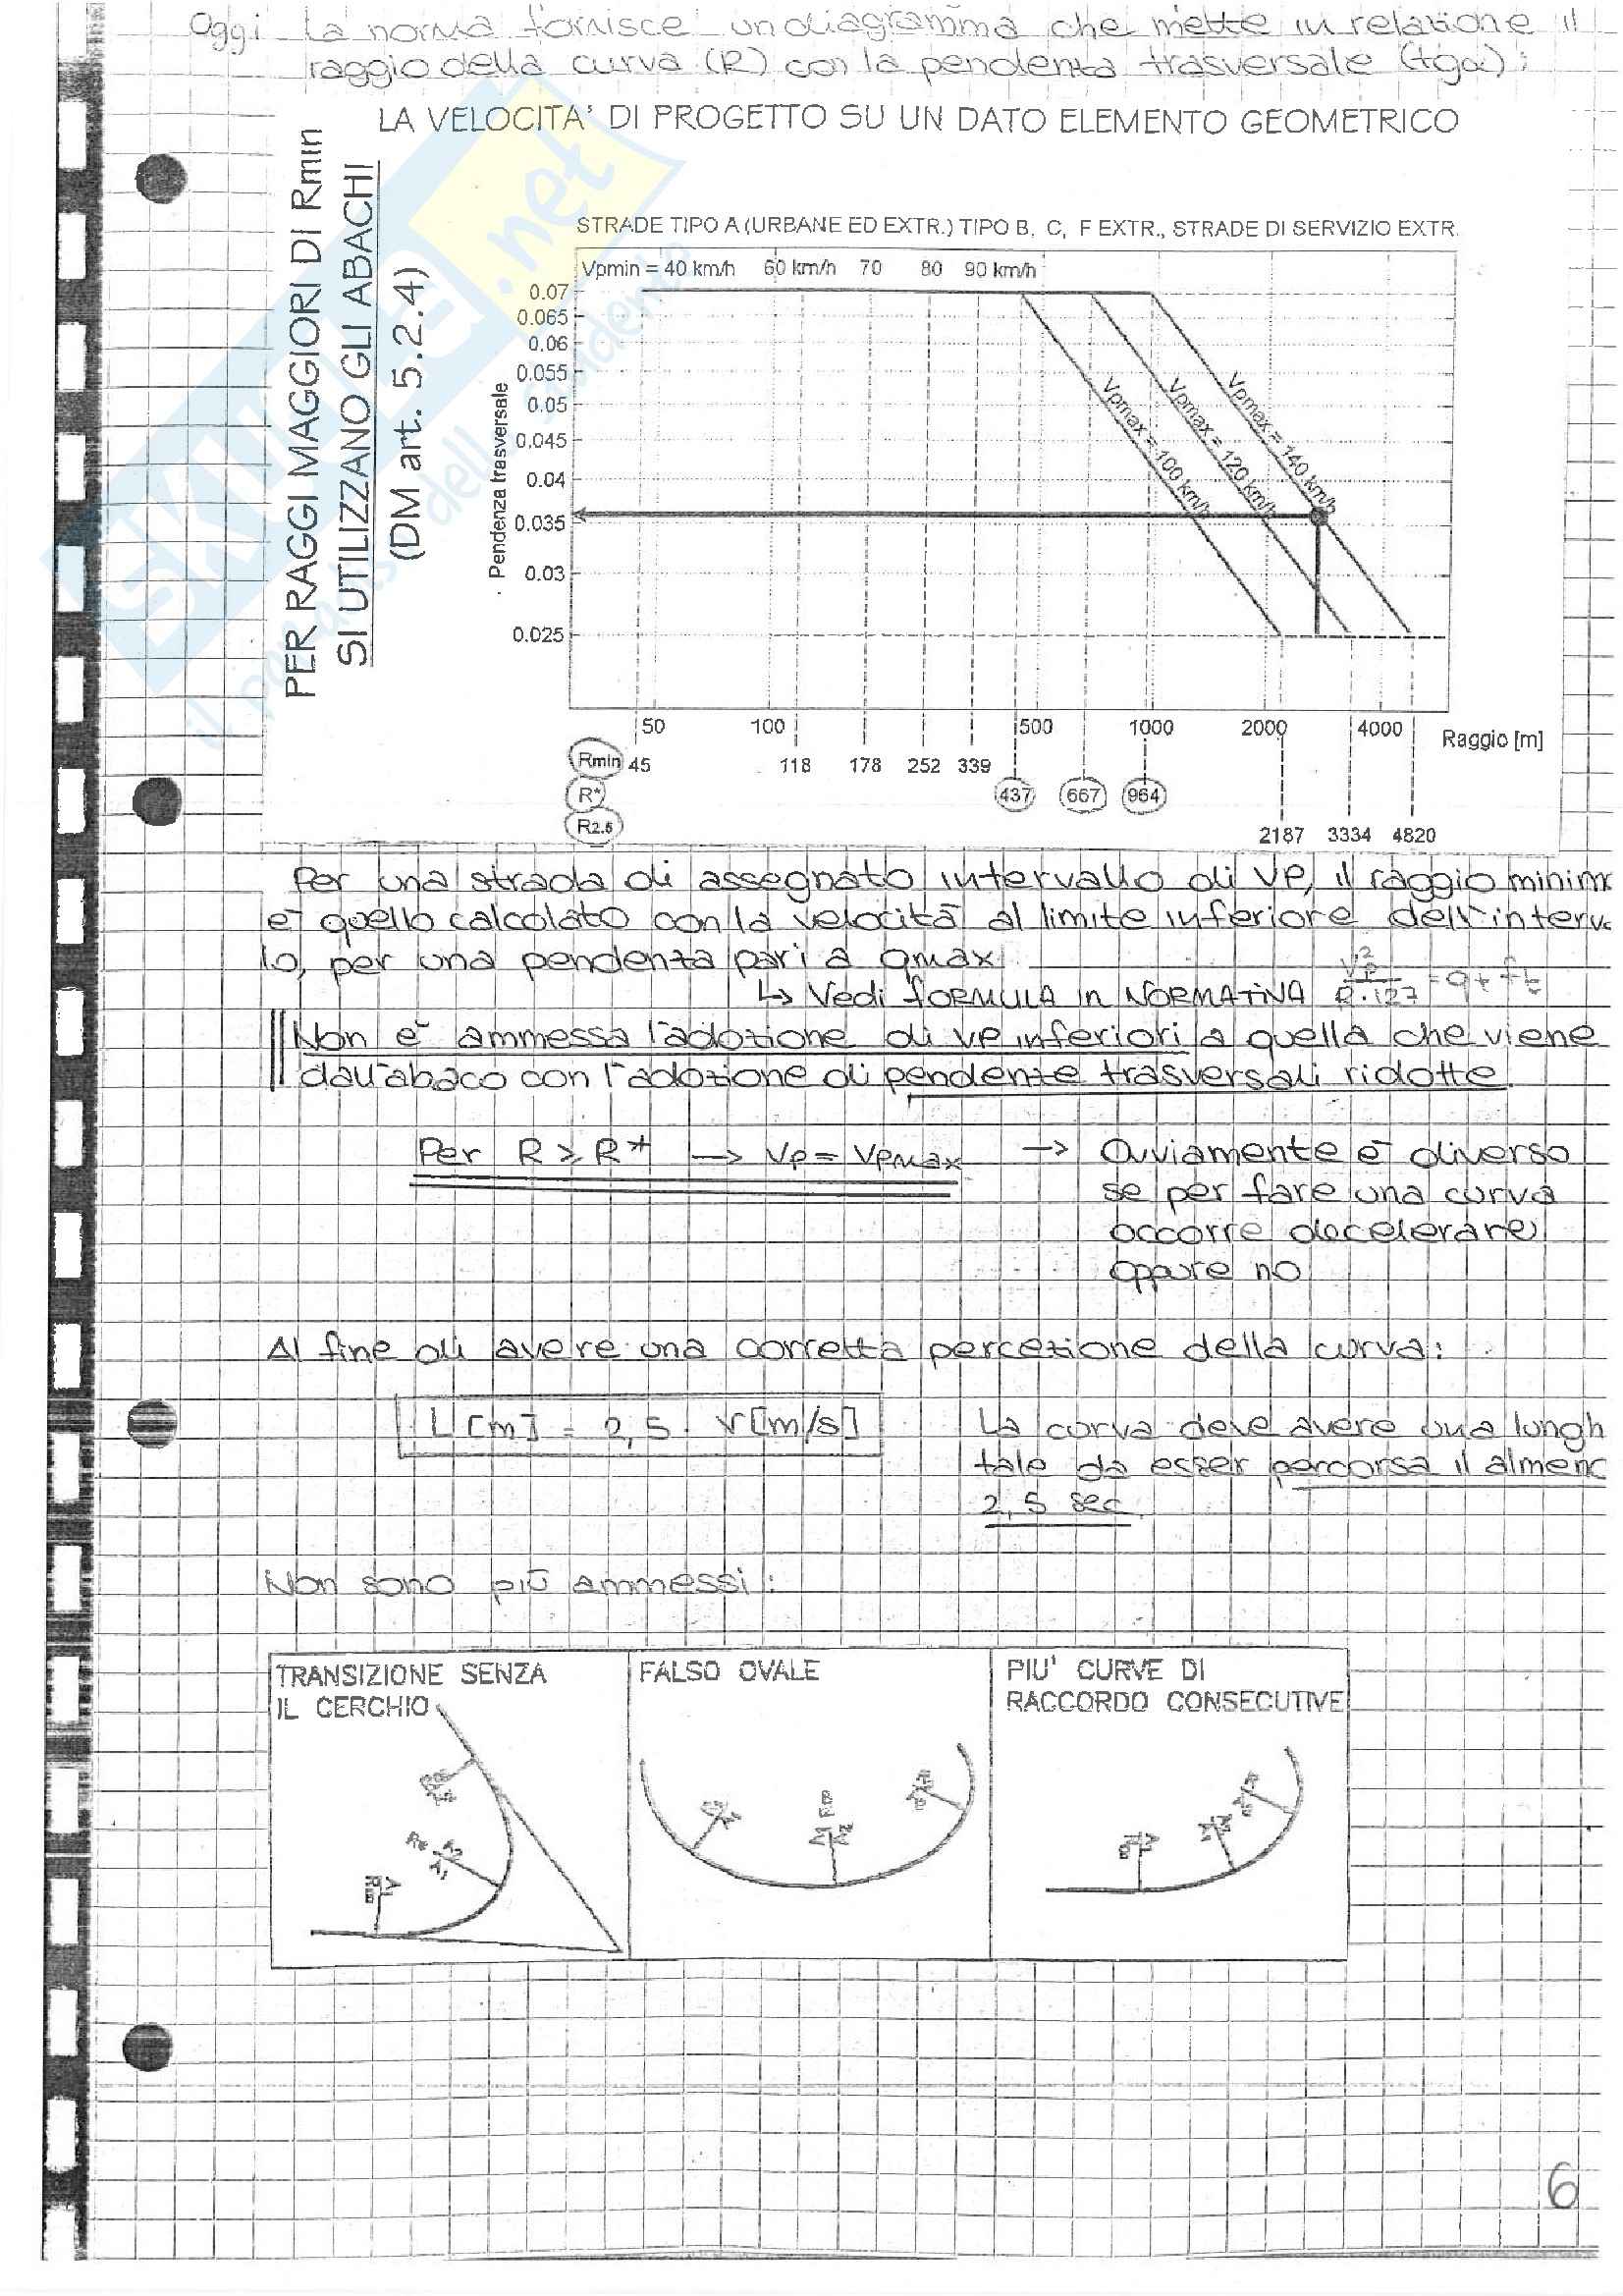 Oggi la norma fornisce un diagramma che mette in relazione il
raggio della curva (R) con la pendenta trasversale (tgα):
LA VELOCITA' DI PROGETTO SU UN DATO ELEMENTO GEOMETRICO
PER RAGGI MAGGIORI DI Rmin
SI UTILIZZANO GLI ABACHI
(DM art. 5.2.4)
STRADE TIPO A (URBANE ED EXTR.) TIPO B, C, F EXTR., STRADE DI SERVIZIO EXTR.
Vpmin = 40 km/h 60 km/h 70 80 90 km/h
Pendenza trasversale
0.07
0.065
0.06
0.055
0.05
0.045
0.04
0.035
0.03
0.025
Vpmax = 100 km/h
Vpmax = 120 km/h
Vpmax = 140 km/h
50 100 500 1000 2000 4000 Raggio [m]
Rmin 45 118 178 252 339
R* 437 667 964
R2.5 2187 3334 4820
skuola.net
Per una strada di assegnato intervallo di VP, il raggio minim
è quello calcolato con la velocità al limite inferiore dell'interva
lo, per una pendenta pari a qmax
↳ Vedi FORMULA in NORMATIVA Vp²/R·127 = q+ft
Non è ammessa l'adozione di VP inferiori a quella che viene
dall'abaco con l'adozione di pendente trasversali ridotte.
Per R ≥ R* → Vp = VpMax → Ovviamente è diverso
se per fare una curva
occorre decelerare
oppure no
Al fine di avere una corretta percezione della curva:
L [m] = 2,5 · V[m/s] La curva deve avere una lungh
tale da esser percorsa il almeno
2,5 sec.
Non sono più ammessi:
TRANSIZIONE SENZA
IL CERCHIO
FALSO OVALE
PIU' CURVE DI
RACCORDO CONSECUTIVE
6